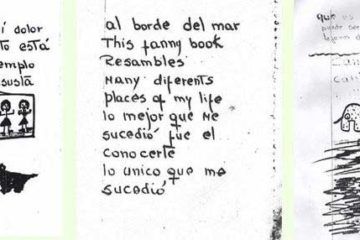 í dolor
to está
emplo
susta
al borde del mar
This fanny book
Resambles
Many diferents
places of my life
lo mejor que me
sucedió fue el
conocerte
lo unico que me
sucedió
que